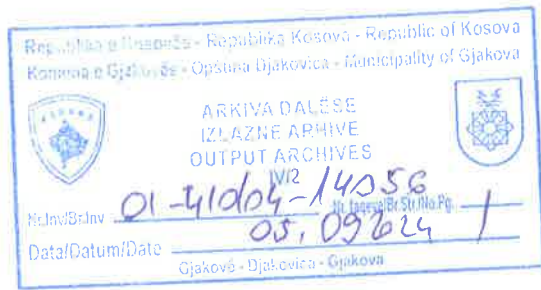 Republika e Kosovës - Republika Kosova - Republic of Kosova
Komuna e Gjakovës - Opština Djakovica - Municipality of Gjakova
ARKIVA DALËSE
IZLAZNE ARHIVE
OUTPUT ARCHIVES
IV/2
Nr.Inv/Br.Inv
Nr. faqeve/Br.Str./No.Pg. 1
Data/Datum/Date 05.09
Gjakovë - Djakovica - Gjakova